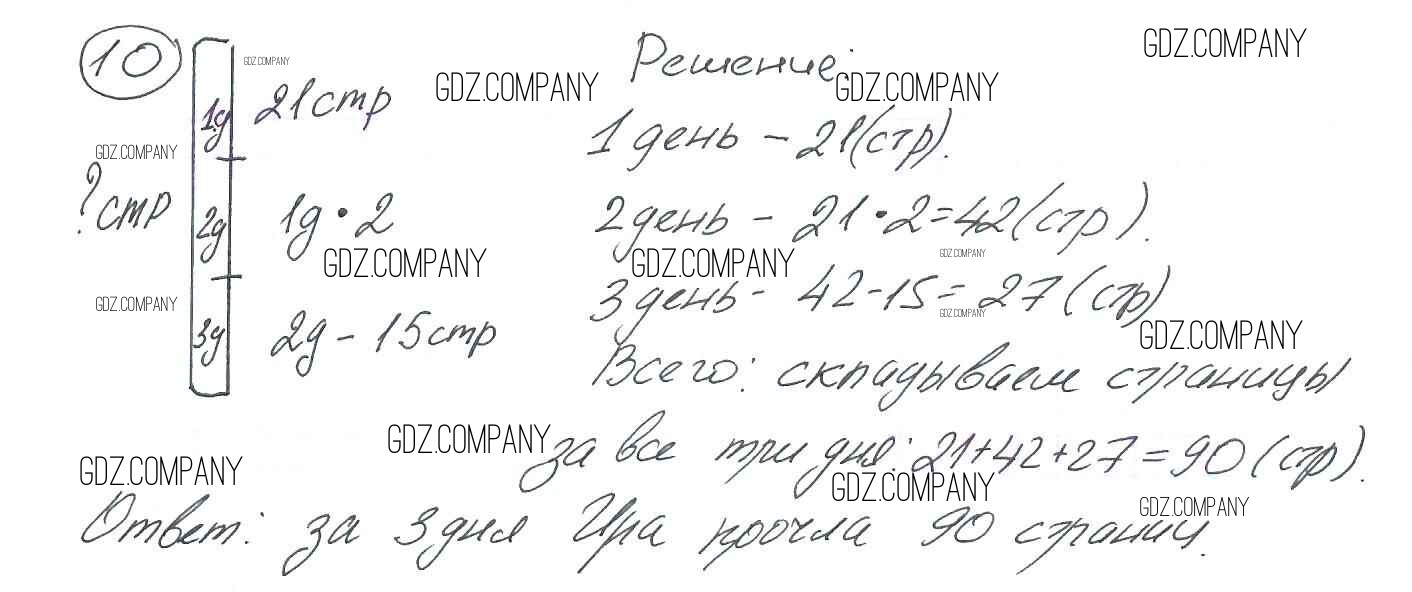 10
GDZ.COMPANY
1д 21 стр
GDZ.COMPANY
? стр
2д 1д · 2
GDZ.COMPANY
GDZ.COMPANY
3д 2д - 15 стр
GDZ.COMPANY
Решение:
GDZ.COMPANY
GDZ.COMPANY
1 день - 21 (стр).
2 день - 21 · 2 = 42 (стр).
GDZ.COMPANY
GDZ.COMPANY
3 день - 42 - 15 = 27 (стр)
GDZ.COMPANY
GDZ.COMPANY
Всего: складываем страницы
GDZ.COMPANY
за все три дня: 21+42+27=90 (стр).
GDZ.COMPANY
GDZ.COMPANY
GDZ.COMPANY
Ответ: за 3 дня Ира прочла 90 страниц.